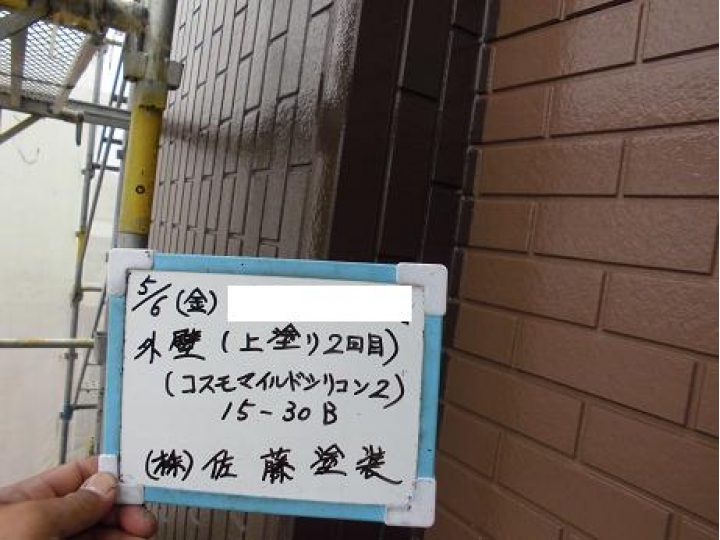 5/6(金)
外壁(上塗り2回目)
(コスモマイルドシリコン2)
15-30B
(株)佐藤塗装